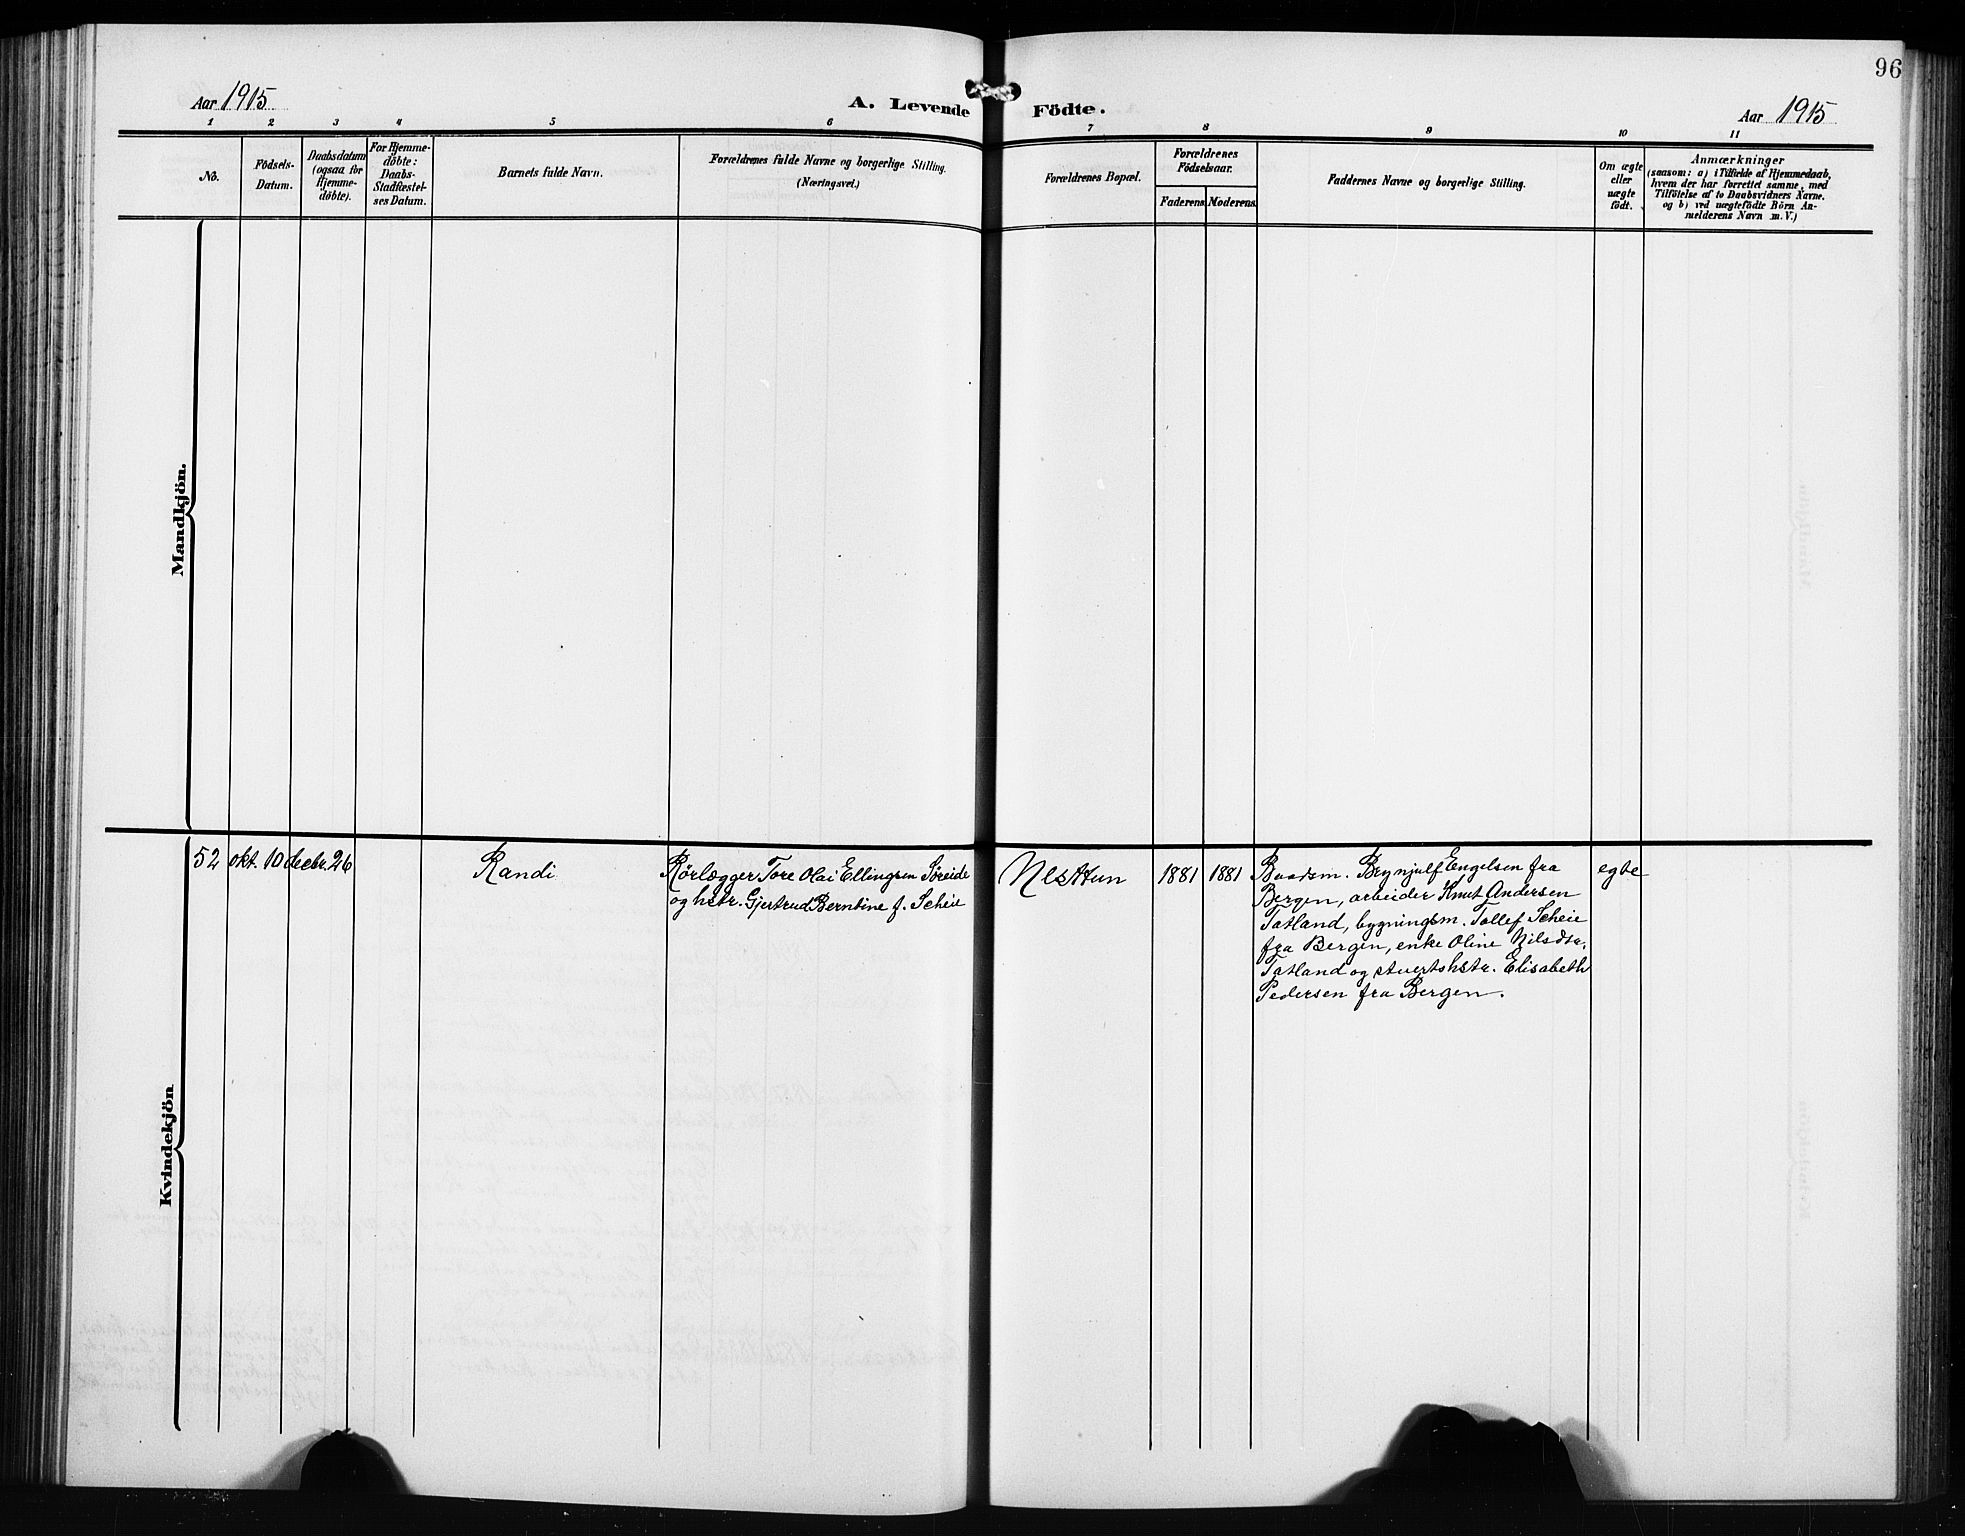 96
Aar 1915
A. Levende Födte.
Aar 1915
1 2 3 4 5 6 7 8 9 10 11
No.
Födsels-
Datum.
Daabsdatum
(ogsaa for
Hjemme-
døbte).
For Hjemme-
døbte:
Daabs-
Stadfæstel-
ses Datum.
Barnets fulde Navn.
Forældrenes fulde Navne og borgerlige Stilling.
(Næringsvei.)
Forældrenes Bopæl.
Forældrenes
Födselsaar.
Faderens
Moderens
Faddernes Navne og borgerlige Stilling.
Om ægte
eller
uægte
født.
Anmærkninger
(saasom: a) i Tilfælde af Hjemmedaab,
hvem der har forrettet samme, med
Tilföielse af to Daabsvidners Navne.
og b) ved uægtefödte Börn An-
melderens Navn m.V.)
Mandkjön.
Kvindekjön
52
okt. 10
decbr. 26
Randi
Rørlægger Tore Olai Ellingsen Søreide
og hstr. Gjertrud Berntine f. Scheie
Nesttun
1881
1881
Baadsm. Brynjulf Engelsen fra
Bergen, arbeider Knut Andersen
Tatland, bygningsm. Tollef Scheie
fra Bergen, enke Oline Nilsdtr.
Tatland og stuertshstr. Elisabeth
Pedersen fra Bergen.
egte